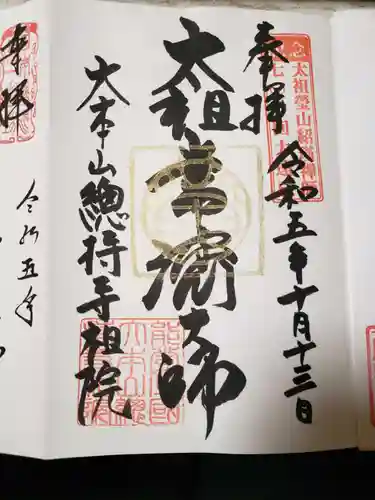 奉拝
太祖瑩山紹瑾禅
令和五年十月十三日
太祖常濟大師
大本山總持寺祖院
奉拝
令和五年